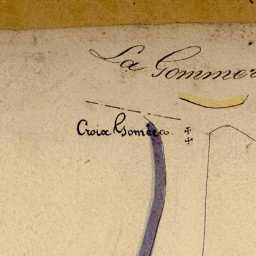 La Gommer
Croix Gomera